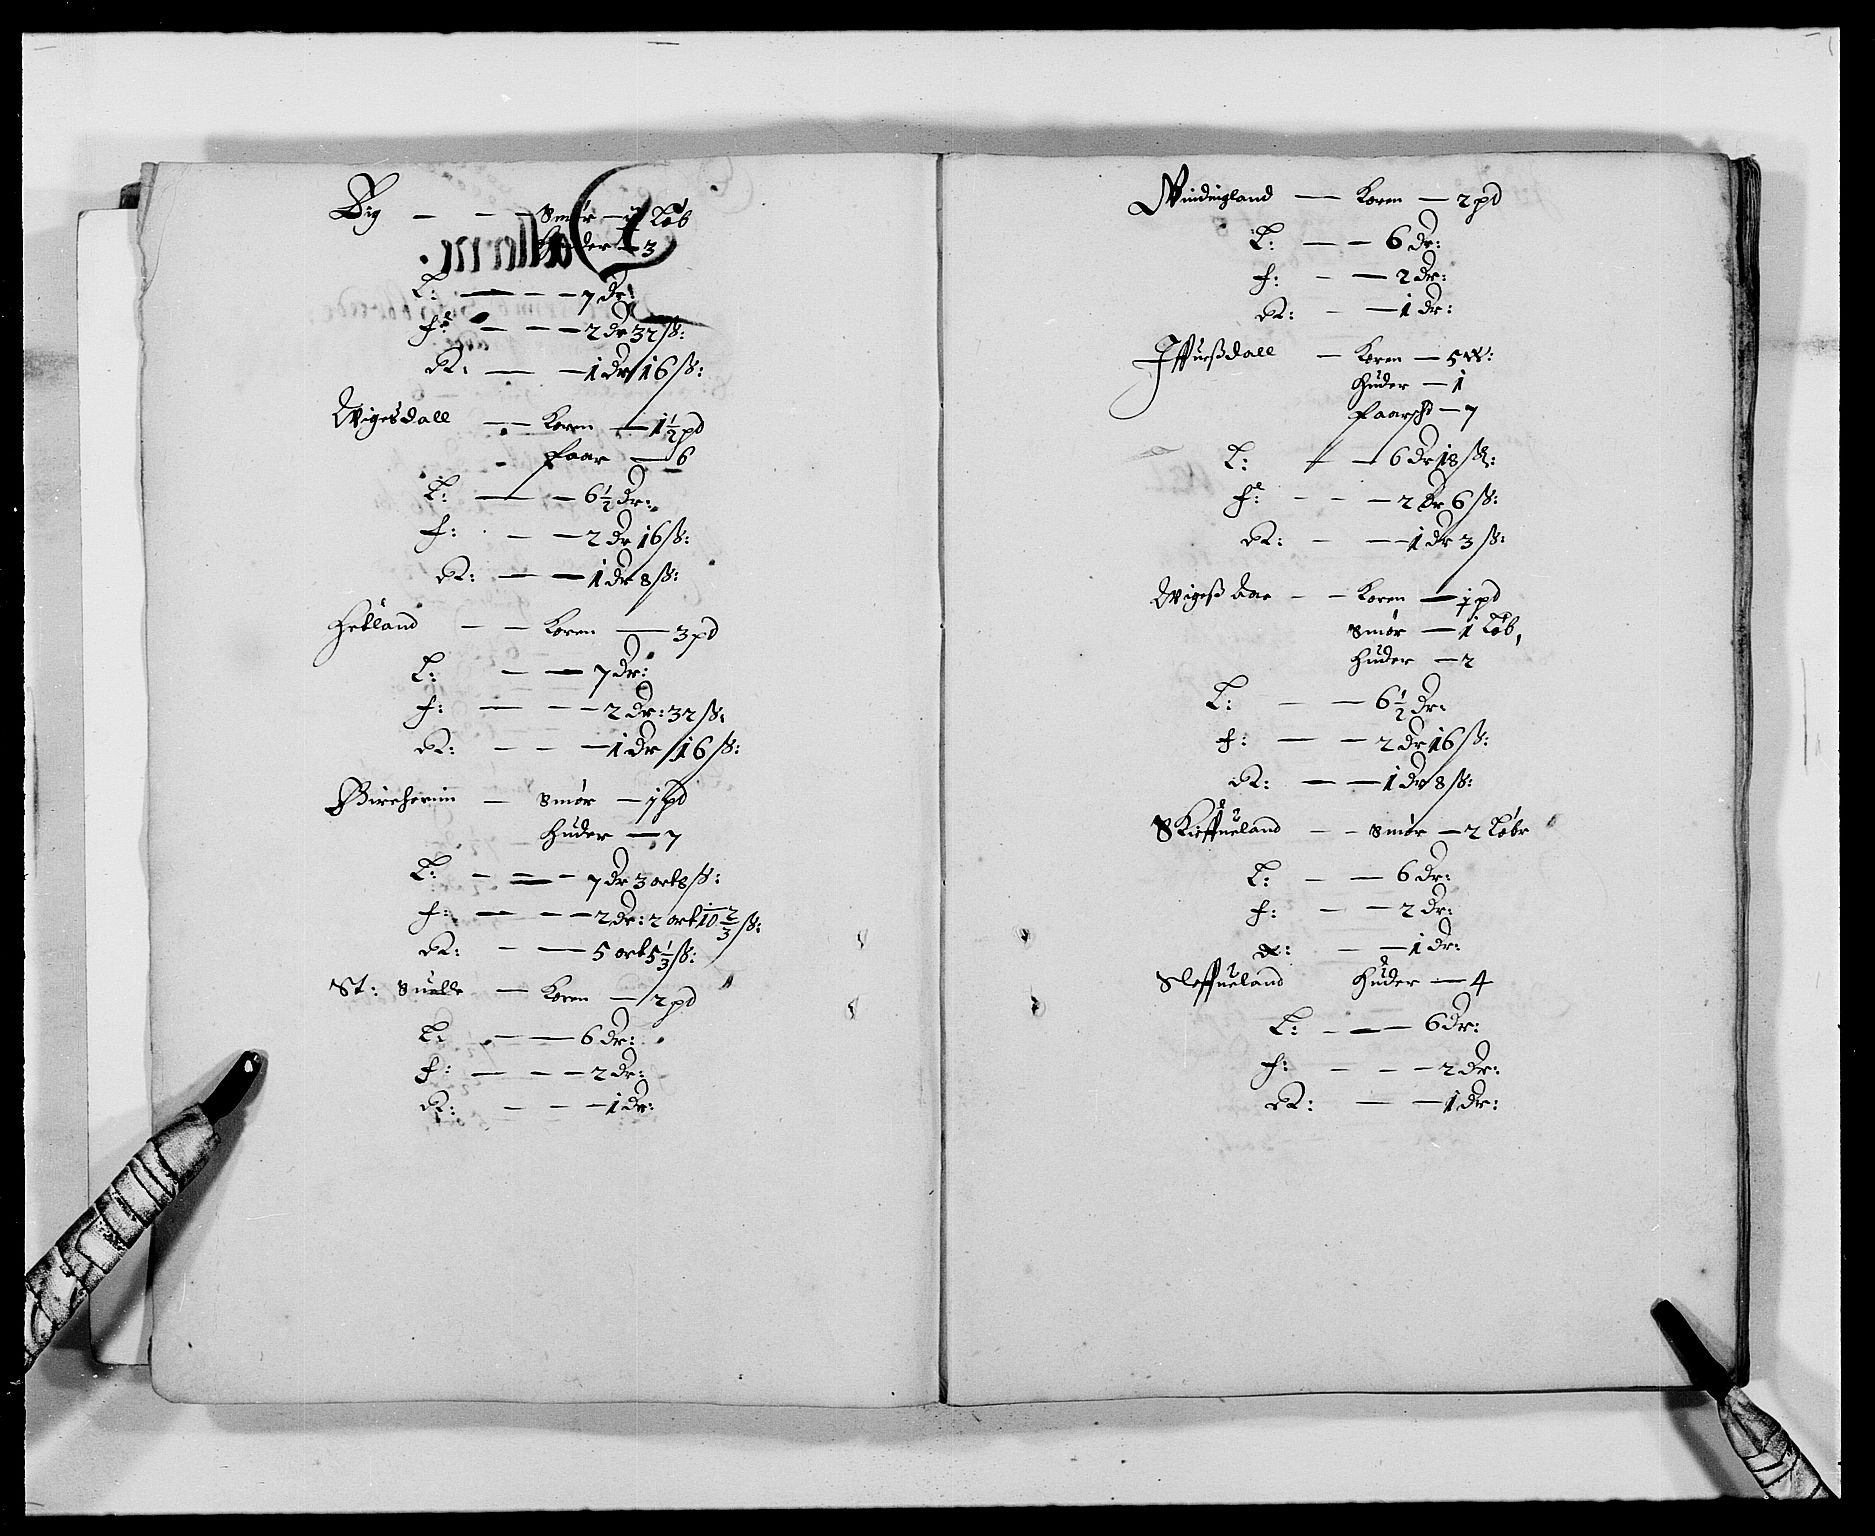 Vig — — Smør — 1 Løb
Huder — 3
L: — — 7 dr:
f: — — 2 dr 32 ß:
R: — — 1 dr 16 ß:
Wigesdall — Koren — 1½ pd
Faar — 6
L: — — 6½ dr:
f: — — 2 dr 16 ß:
R: — — 1 dr 8 ß:
Hetland — — Koren — 3 pd
L: — — 7 dr:
f: — — 2 dr: 32 ß:
R: — — 1 dr 16 ß:
Bircheriim — Smør — 1 pd
Huder — 7
L: — — 7 dr 3 ort 8 ß:
f: — — 2 dr: 2 ort 10 2/3 ß:
R: — — 5 ort 5 1/3 ß:
St: Suelle — Koren — 2 pd
L: — — 6 dr:
f: — — 2 dr:
R: — — 1 dr:
Windingland — Koren — 2 pd
L: — — 6 dr:
f: — — 2 dr:
R: — — 1 dr:
Iffuerßdall — Koren — 5 W:
Huder — 1
Faarsk — 7
L: — — 6 dr 18 ß:
f: — — 2 dr 6 ß:
R: — — 1 dr 3 ß:
Wigeß aae — — Koren — 1 pd
Smør — 1 Løb,
Huder — 2
L: — — 6½ dr:
f: — — 2 dr 16 ß:
R: — — 1 dr 8 ß:
Skieffueland — — Smør — 2 Løbe
L: — — 6 dr:
f: — — 2 dr:
R: — — 1 dr:
Sleffueland Huder — 4
L: — — 6 dr:
f: — — 2 dr:
R: — — 1 dr: